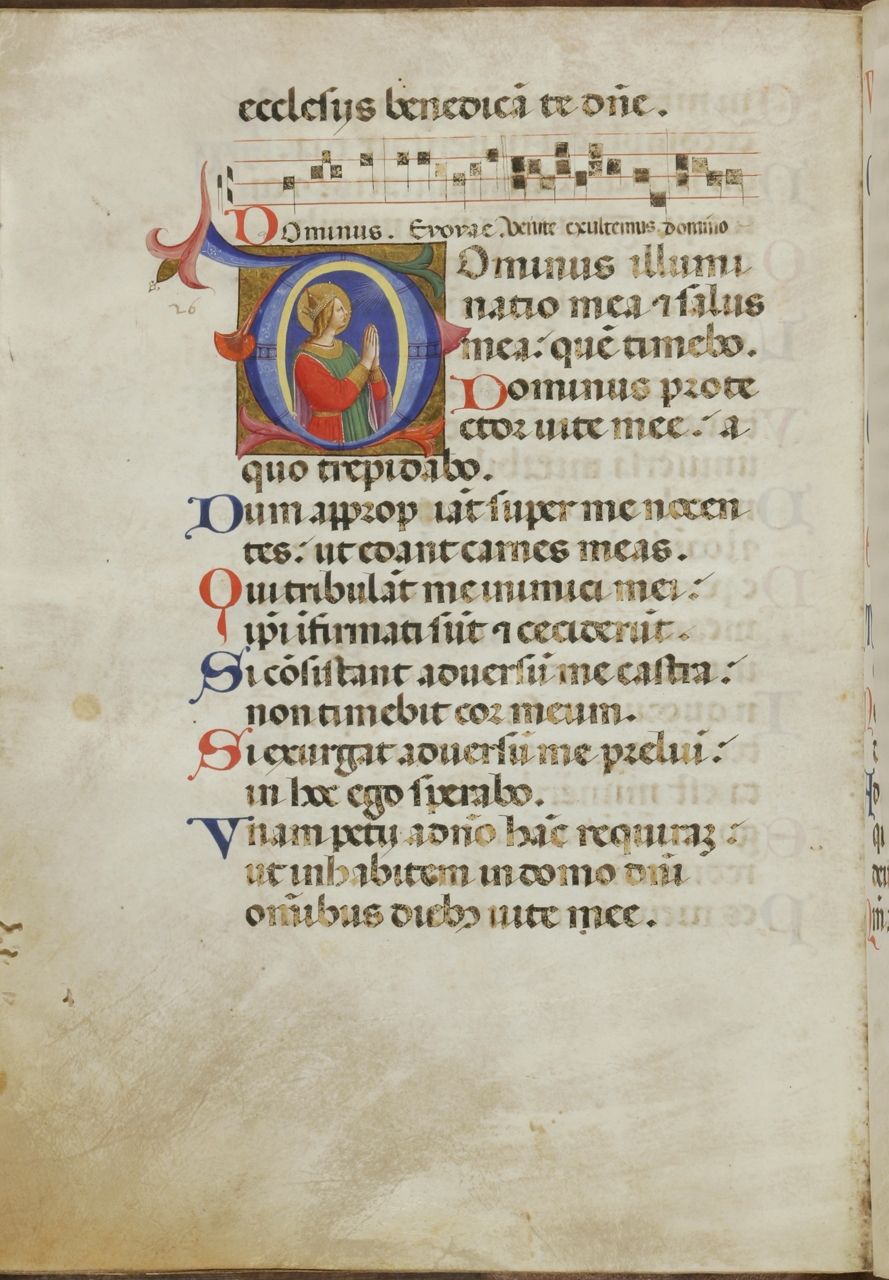 ecclesijs benedicā te dn̄e.
DOminus. Evovae. Venite exultemus domino
26
Ominus illumi
natio mea ⁊ salus
mea: quē timebo.
Dominus prote
ctor uite mee: a
quo trepidabo.
Dum approp iāt super me nocen
tes: ut edant carnes meas.
Qui tribulāt me inimici mei:
ip̄i īfirmati sūt ⁊ ceciderūt.
Si cōsistant aduersū me castra:
non timebit cor meum.
Si exurgat aduersū me prelium:
in hoc ego sperabo.
Vnam petij a dn̄o hāc requiraꝫ:
ut inhabitem in domo dn̄i
om̄ibus diebꝰ uite mee.